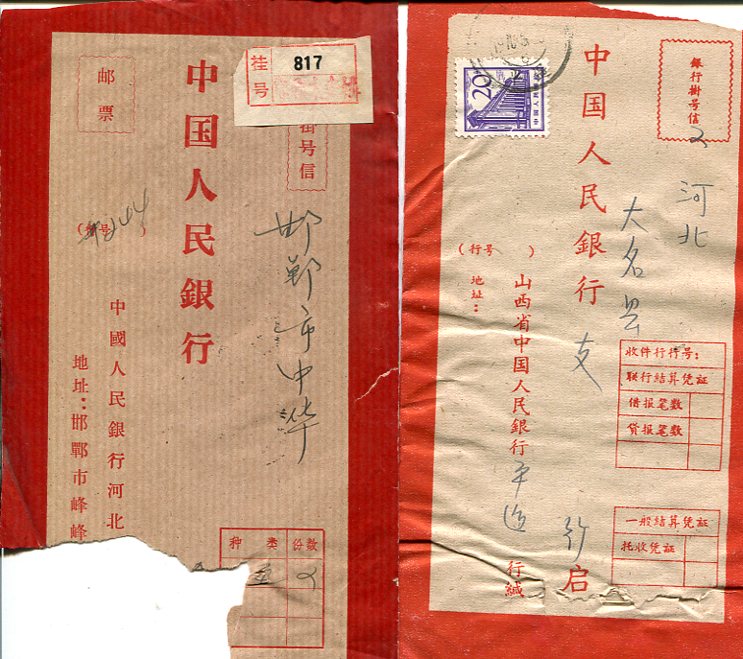 邮票
中国人民銀行
挂号
817
掛号信
邯郸市中华
(行号 )
中國人民銀行河北
地址：邯鄲市峰峰
种类 份数
銀行掛号信
20
中国人民銀行
河北
大名县
支
行
启
(行号 )
地址：
山西省中国人民銀行
行緘
收件行行号：
联行结算凭证
借报笔数
贷报笔数
一般结算凭证
托收凭证